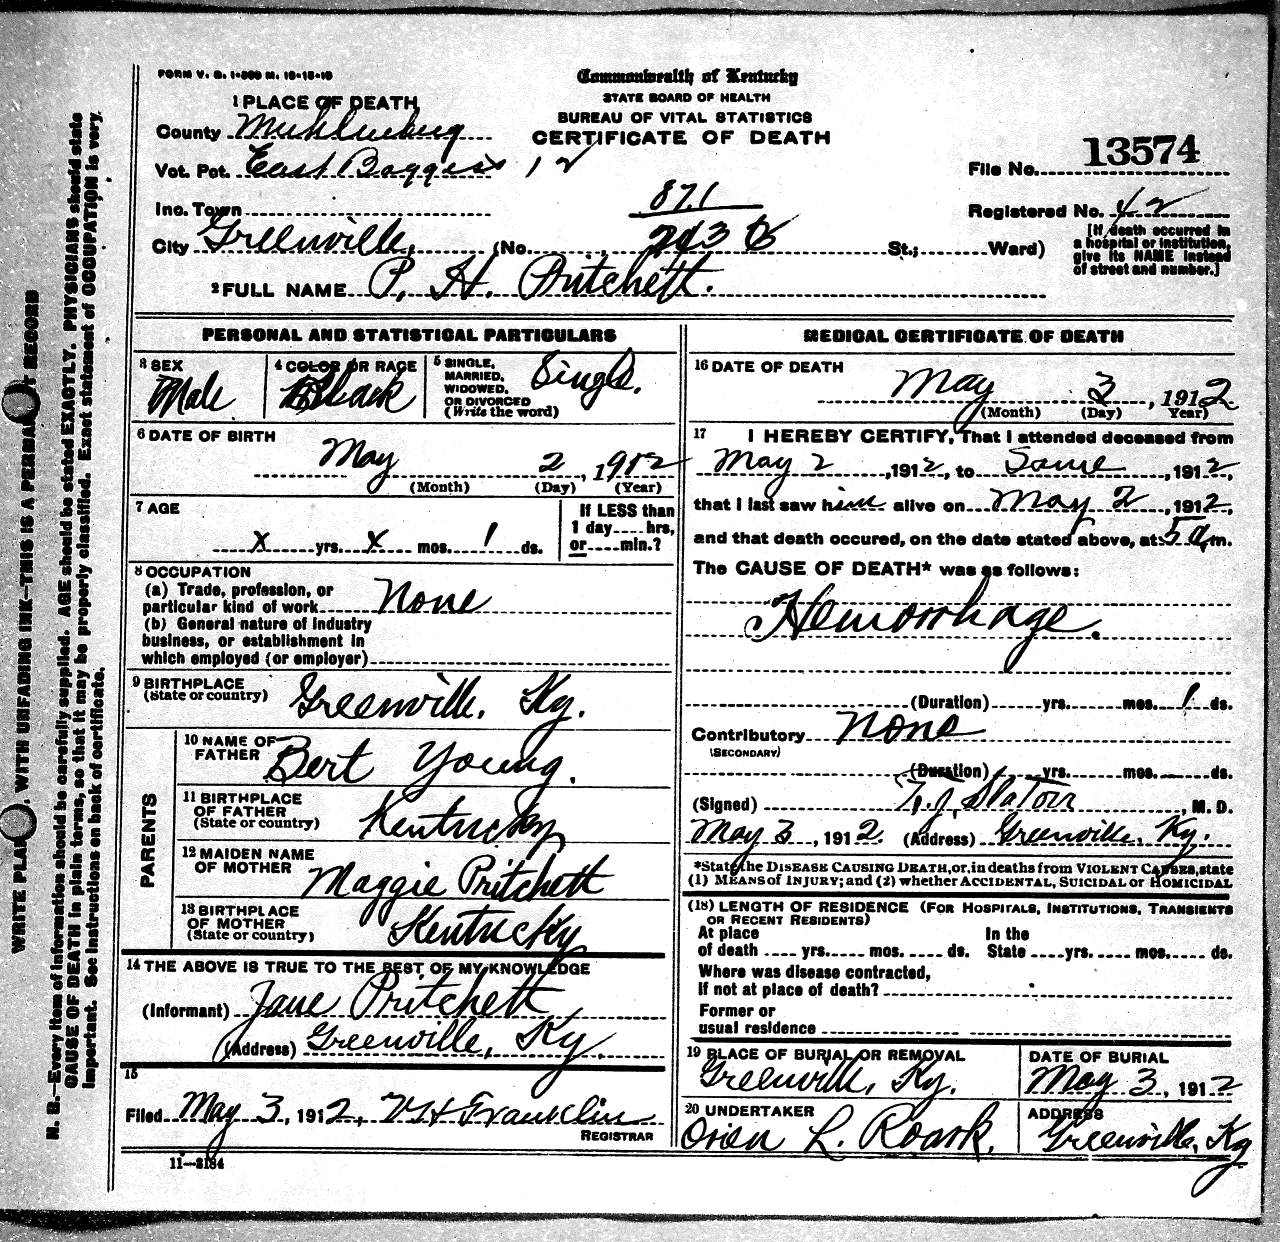 FORM V. S. 1-500 M. 10-15-10
Commonwealth of Kentucky
STATE BOARD OF HEALTH
BUREAU OF VITAL STATISTICS
CERTIFICATE OF DEATH
1 PLACE OF DEATH
County Muhlenberg
Vot. Pct. East Boggess 12
Inc. Town
871
City Greenville, (No. St.; Ward)
File No. 13574
Registered No. 42
[If death occurred in
a hospital or institution,
give its NAME instead
of street and number.]
2 FULL NAME P. H. Pritchett.
PERSONAL AND STATISTICAL PARTICULARS
3 SEX
Male
4 COLOR OR RACE
Black
5 SINGLE,
MARRIED,
WIDOWED,
OR DIVORCED
(Write the word)
Single.
6 DATE OF BIRTH
May 2, 1912
(Month) (Day) (Year)
7 AGE
x yrs. x mos. 1 ds.
If LESS than
1 day.... hrs,
or.....min.?
8 OCCUPATION
(a) Trade, profession, or
particular kind of work None
(b) General nature of industry
business, or establishment in
which employed (or employer)
9 BIRTHPLACE
(State or country) Greenville, Ky.
PARENTS
10 NAME OF
FATHER Bert Young.
11 BIRTHPLACE
OF FATHER
(State or country) Kentucky
12 MAIDEN NAME
OF MOTHER Maggie Pritchett
13 BIRTHPLACE
OF MOTHER
(State or country) Kentucky
14 THE ABOVE IS TRUE TO THE BEST OF MY KNOWLEDGE
(Informant) Jane Pritchett
(Address) Greenville, Ky.
15
Filed May 3, 1912, Franklin
REGISTRAR
11-3184
MEDICAL CERTIFICATE OF DEATH
16 DATE OF DEATH
May 3, 1912
(Month) (Day) (Year)
17 I HEREBY CERTIFY, That I attended deceased from
May 2, 1912, to Same, 1912,
that I last saw him alive on May 2, 1912,
and that death occured, on the date stated above, at 5 a.m.
The CAUSE OF DEATH* was as follows:
Hemorrhage.
(Duration) yrs. mos. 1 ds.
Contributory None
(SECONDARY)
(Duration) yrs. mos. ds.
(Signed) T. J. Slaton, M. D.
May 3, 1912. (Address) Greenville, Ky.
*State the DISEASE CAUSING DEATH, or, in deaths from VIOLENT CAUSES, state
(1) MEANS of INJURY; and (2) whether ACCIDENTAL, SUICIDAL or HOMICIDAL
(18) LENGTH OF RESIDENCE (FOR HOSPITALS, INSTITUTIONS, TRANSIENTS
OR RECENT RESIDENTS)
At place In the
of death .... yrs. .... mos. .... ds. State .... yrs. .... mos. .... ds.
Where was disease contracted,
If not at place of death?
Former or
usual residence
19 PLACE OF BURIAL OR REMOVAL
Greenville, Ky.
DATE OF BURIAL
May 3, 1912
20 UNDERTAKER
Orien L. Roark.
ADDRESS
Greenville, Ky
WRITE PLAINLY, WITH UNFADING INK—THIS IS A PERMANENT RECORD
N. B.—Every item of information should be carefully supplied. AGE should be stated EXACTLY. PHYSICIANS should state
CAUSE OF DEATH in plain terms, so that it may be properly classified. Exact statement of OCCUPATION is very
important. See instructions on back of certificate.